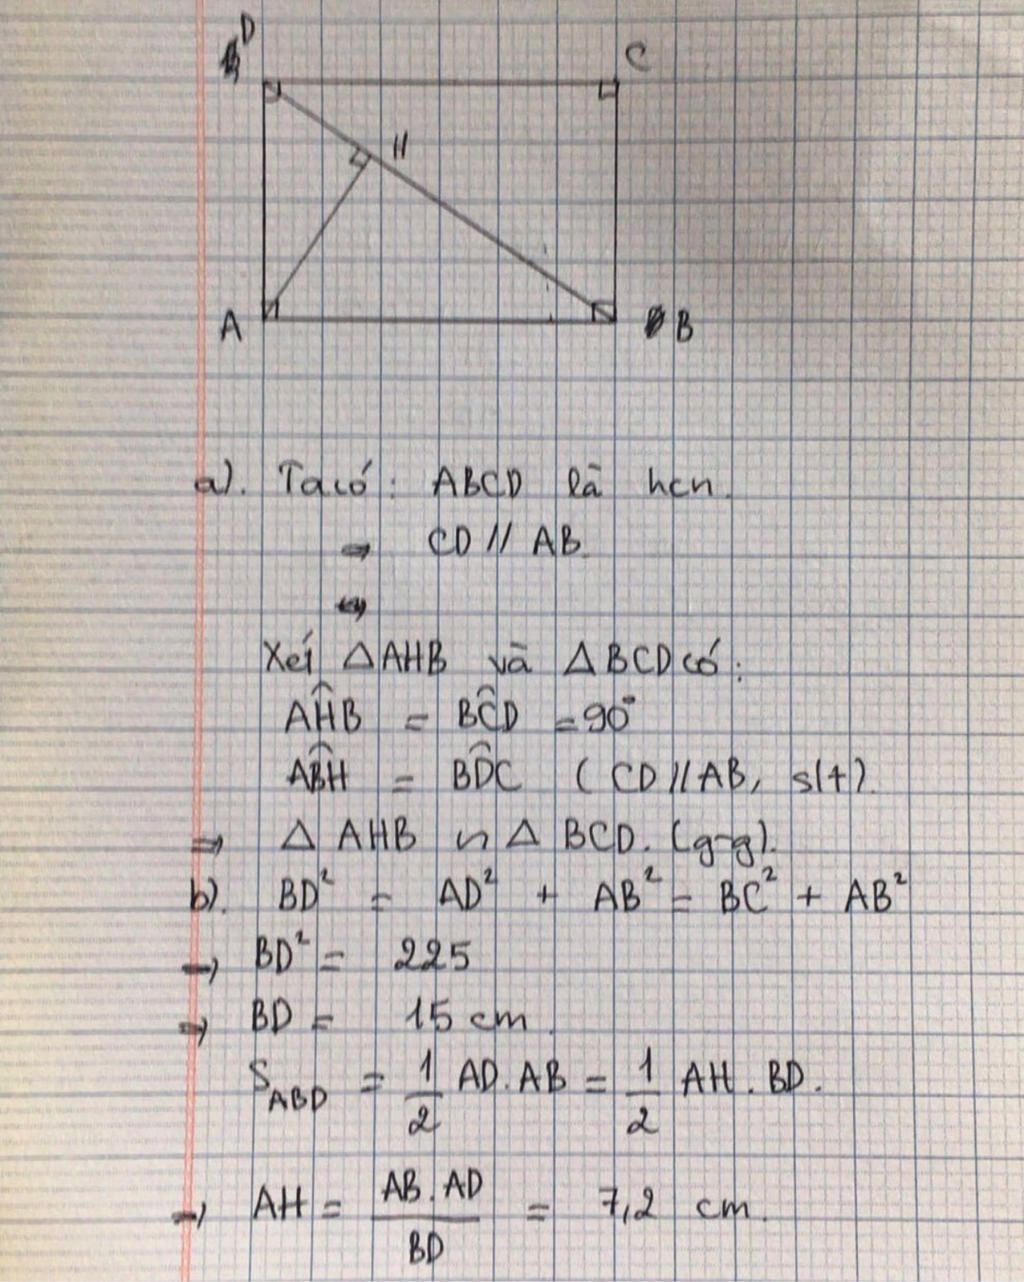 D C
H
A B
a). Ta có: ABCD là hcn.
⇒ CD // AB.
⇔
Xét △AHB và △BCD có:
AĤB = BĈD = 90°
AB̂H = BD̂C (CD//AB, slt).
⇒ △ AHB ∽ △ BCD. (g-g).
b). BD² = AD² + AB² = BC² + AB²
→ BD² = 225
→ BD = 15 cm.
S_ABD = 1/2 AD.AB = 1/2 AH.BD.
→ AH = AB.AD/BD = 7,2 cm.